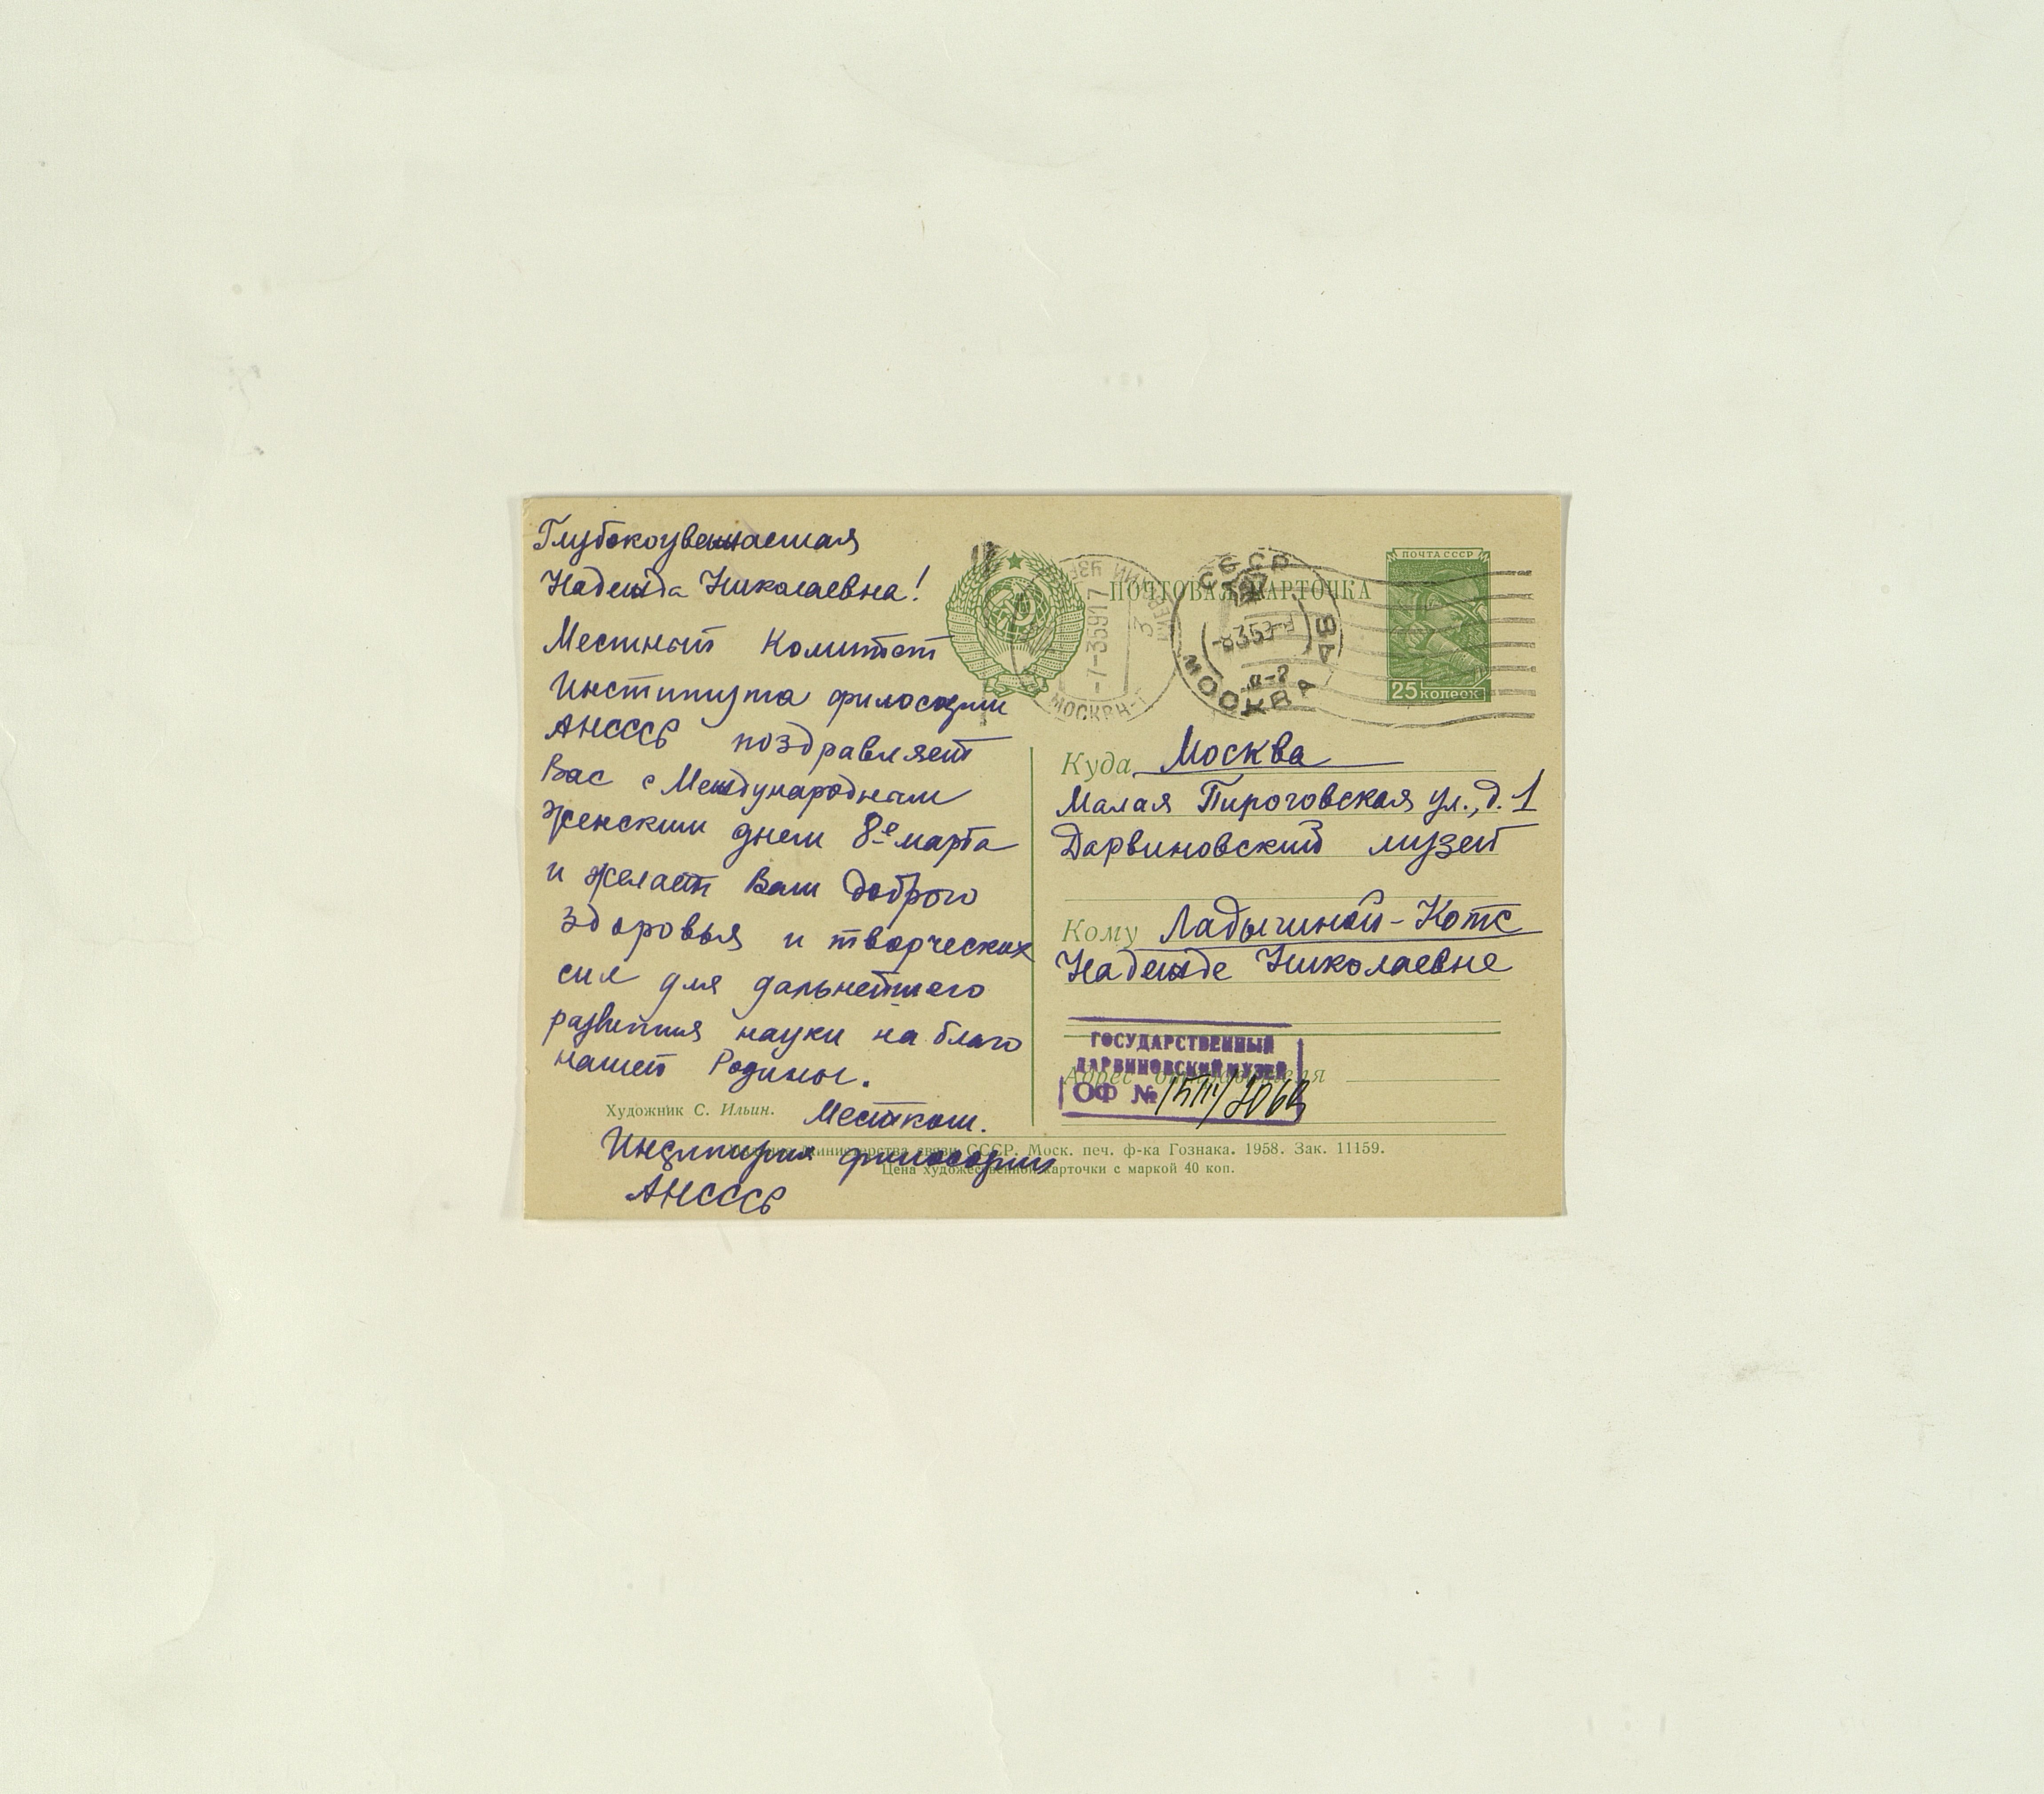 Глубокоуважаемая
Надежда Николаевна!
Местный Комитет
Института философии
АНСССР поздравляет
Вас с Международным
женским днем 8е марта
и желает Вам доброго
здоровья и творческих
сил для дальнейшего
развития науки на благо
нашей Родины.
Местком.
Института философии
АНСССР
Художник С. Ильин.
ПОЧТОВАЯ КАРТОЧКА
МОСКВА
СССР
МОСКВА
ПОЧТА СССР
25 копеек
Куда Москва
Малая Пироговская ул., д. 1
Дарвиновский музей
Кому Ладыгиной-Котс
Надежде Николаевне
Адрес отправителя
ГОСУДАРСТВЕННЫЙ
ДАРВИНОВСКИЙ МУЗЕЙ
ОФ №
Министерства связи СССР. Моск. печ. ф-ка Гознака. 1958. Зак. 11159.
Цена художественной карточки с маркой 40 коп.